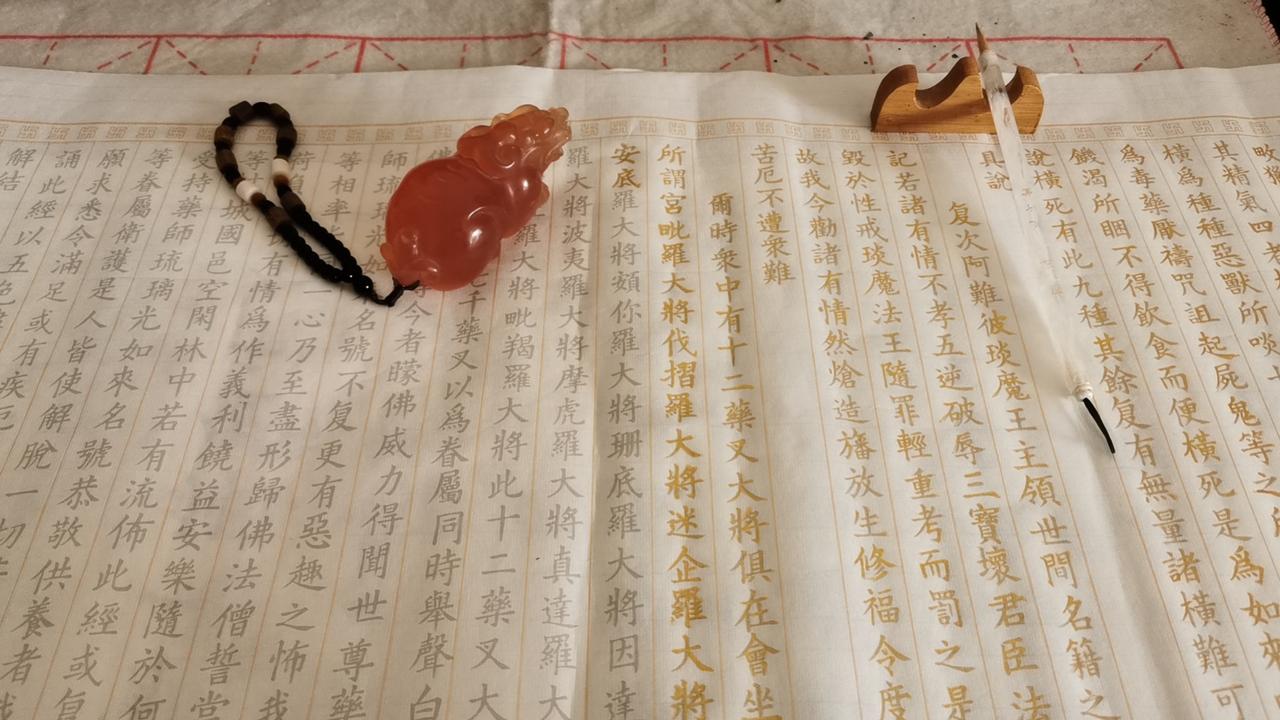 其精氣四者
橫為種種惡獸所啖
為毒藥厭禱咒詛起屍鬼等之
饑渴所困不得飲食而便橫死是為如來
說橫死有此九種其餘复有無量諸橫難可
具說
复次阿難彼琰魔王主領世間名籍之
記若諸有情不孝五逆破辱三寶壞君臣法
毀於性戒琰魔法王隨罪輕重考而罰之是
故我今勸諸有情然燈造旛放生修福令度
苦厄不遭眾難
爾時眾中有十二藥叉大將俱在會坐
所謂宮毗羅大將伐摺羅大將迷企羅大將
安底羅大將頞你羅大將珊底羅大將因達
羅大將波夷羅大將摩虎羅大將真達羅大
羅大將毗羯羅大將此十二藥叉大
七千藥叉以為眷屬同時舉聲白
今者曚佛威力得聞世尊藥
師琉璃光如名號不复更有惡趣之怖我
等相率一心乃至盡形歸佛法僧誓當
荷有情為作義利饒益安樂隨於何
等城國邑空閑林中若有流佈此經或复
受持藥師琉璃光如來名號恭敬供養者我
等眷屬衛護是人皆使解脫一切
願求悉令滿足或有疾厄
誦此經以五色
解結